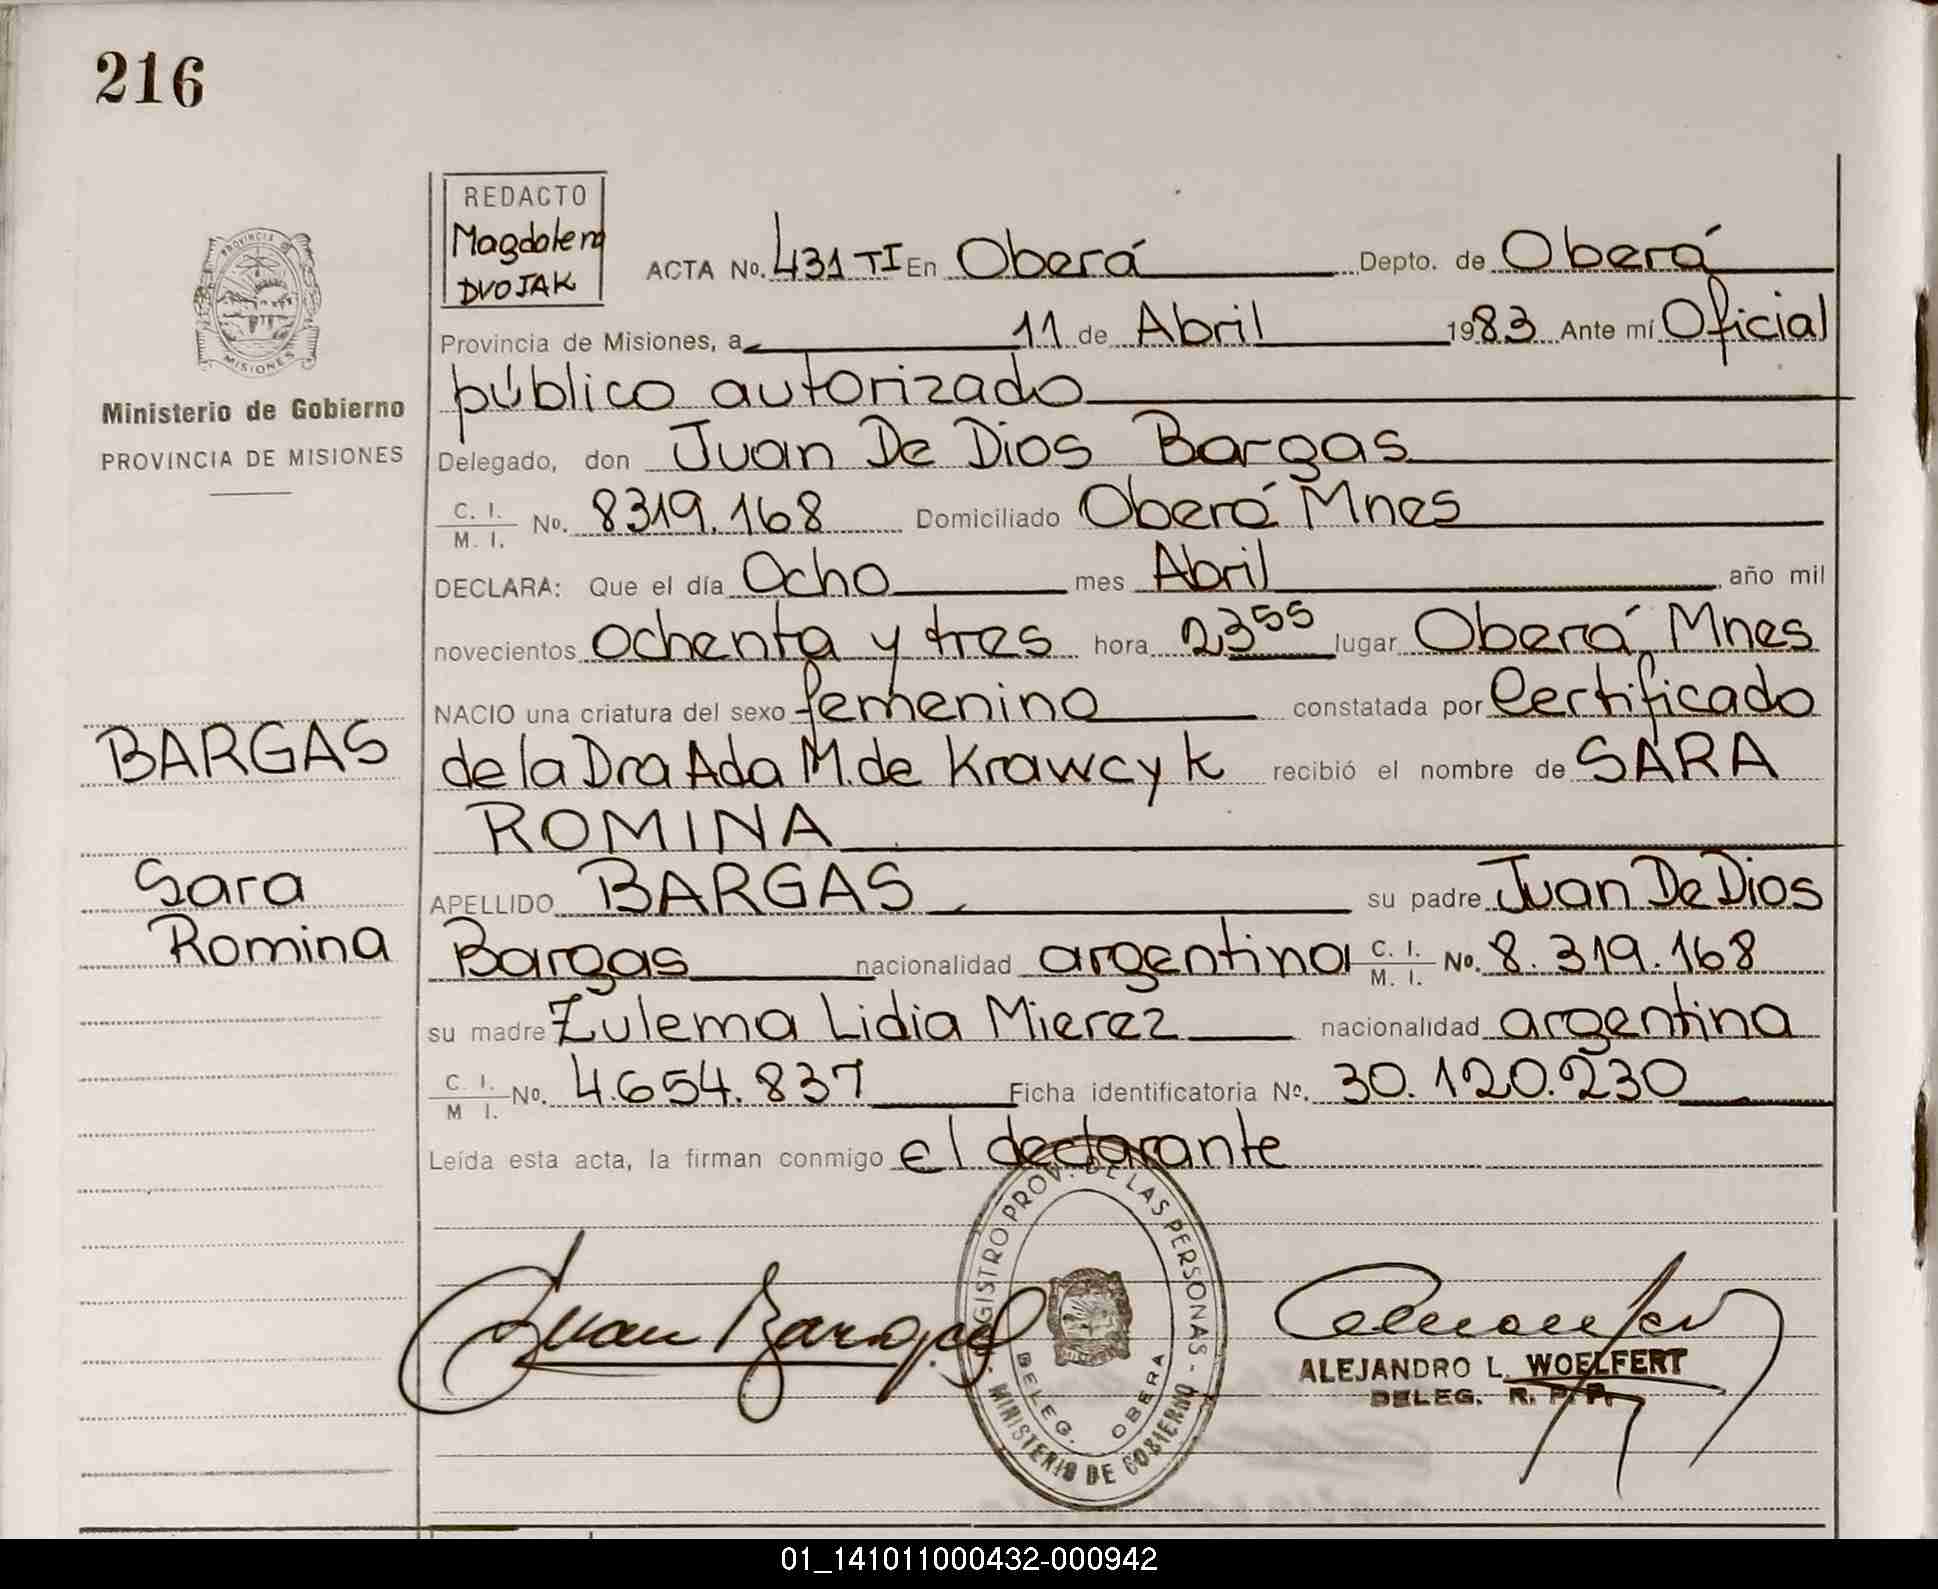 216
REDACTO
Magdalena
DVOJAK
ACTA No. 431 TI En Oberá Depto. de Oberá
Provincia de Misiones, a 11 de Abril 1983 Ante mí Oficial
público autorizado
Delegado, don Juan De Dios Bargas
C. I. / M. I. No. 8319.168 Domiciliado Oberá Mnes
DECLARA: Que el día Ocho mes Abril año mil
novecientos ochenta y tres hora 23 55 lugar Oberá, Mnes
NACIO una criatura del sexo femenino constatada por Certificado
de la Dra Ada M. de Krawcyk recibió el nombre de SARA
ROMINA
APELLIDO BARGAS su padre Juan De Dios
Bargas nacionalidad argentina C. I. / M. I. No. 8.319.168
su madre Zulema Lidia Mierez nacionalidad argentina
C. I. / M I. No. 4.654.837 Ficha identificatoria No. 30.120.230
Leída esta acta, la firman conmigo el declarante
PROVINCIA
MISIONES
Ministerio de Gobierno
PROVINCIA DE MISIONES
BARGAS
Sara
Romina
Juan Bargas
REGISTRO PROV. DE LAS PERSONAS - MINISTERIO DE GOBIERNO
DELEG. OBERA
ALEJANDRO L. WOELFERT
DELEG. R. P. P.
01_141011000432-000942